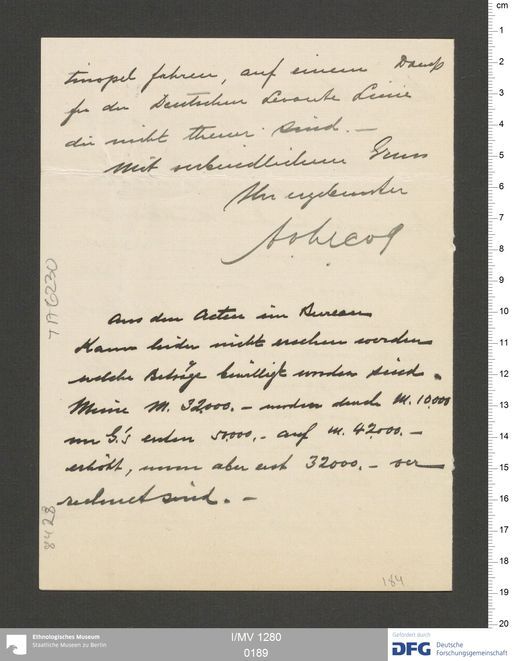 tinopel fahren, auf einem Damp
fer der Deutschen Levante Linie
die nicht theuer sind. —
Mit verbindlichem Gruss
Ihr ergebenster
Aus den Acten im Bureau
kann leider nicht ersehen werden
welche Beträge bewilligt worden sind.
Meine M. 32,000.– wurden durch M. 10,000
von G.'s ersten 50000.– auf M. 42,000.–
erhöht, wovon aber erst 32000.– ver
rechnet sind. –
7A6230
8428
184
cm
1
2
3
4
5
6
7
8
9
10
11
12
13
14
15
16
17
18
19
20
Ethnologisches Museum
Staatliche Museen zu Berlin
I/MV 1280
0189
Gefördert durch
DFG Deutsche
Forschungsgemeinschaft